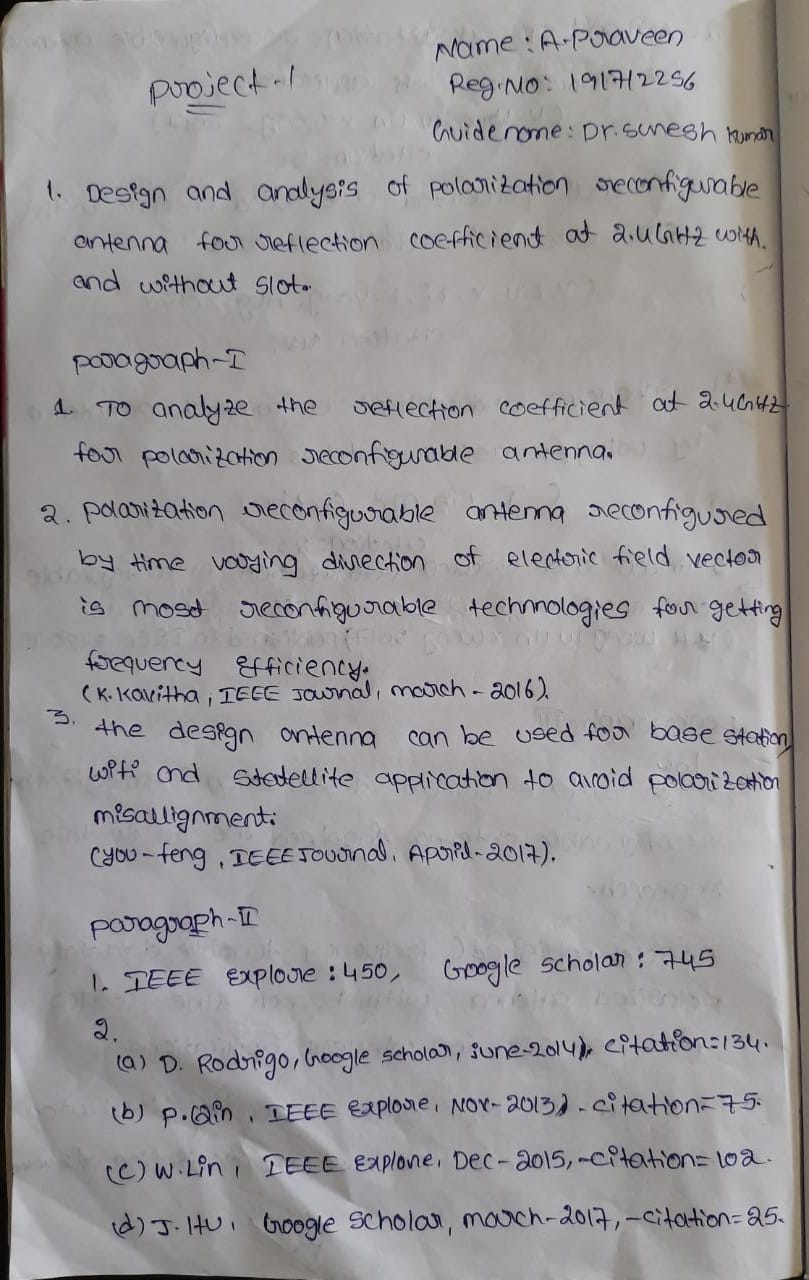 Name : A. Praveen
Project-1
Reg.No: 191712256
Guide name : Dr. Suresh Kumar
1. Design and analysis of polarization reconfigurable
antenna for reflection coefficient at 2.4GHz with
and without slot.
paragraph-I
1. To analyze the reflection coefficient at 2.4GHz
for polarization reconfigurable antenna.
2. polarization reconfigurable antenna reconfigured
by time varying direction of electric field vector
is most reconfigurable technologies for getting
frequency efficiency.
(K. Kavitha, IEEE Journal, march - 2016).
3. the design antenna can be used for base station,
wifi and Statellite application to avoid polarization
misallignment.
(you-feng, IEEE Journal, April-2017).
paragraph-II
1. IEEE Explore : 450, Google scholar : 745
2.
(a) D. Rodrigo, Google scholar, June-2014), citation=134.
(b) P. Qin, IEEE Explore, Nov-2013). - citation=75.
(c) W. Lin, IEEE Explore, Dec-2015, -citation=102.
(d) J. HU, Google Scholar, march-2017, -citation=25.